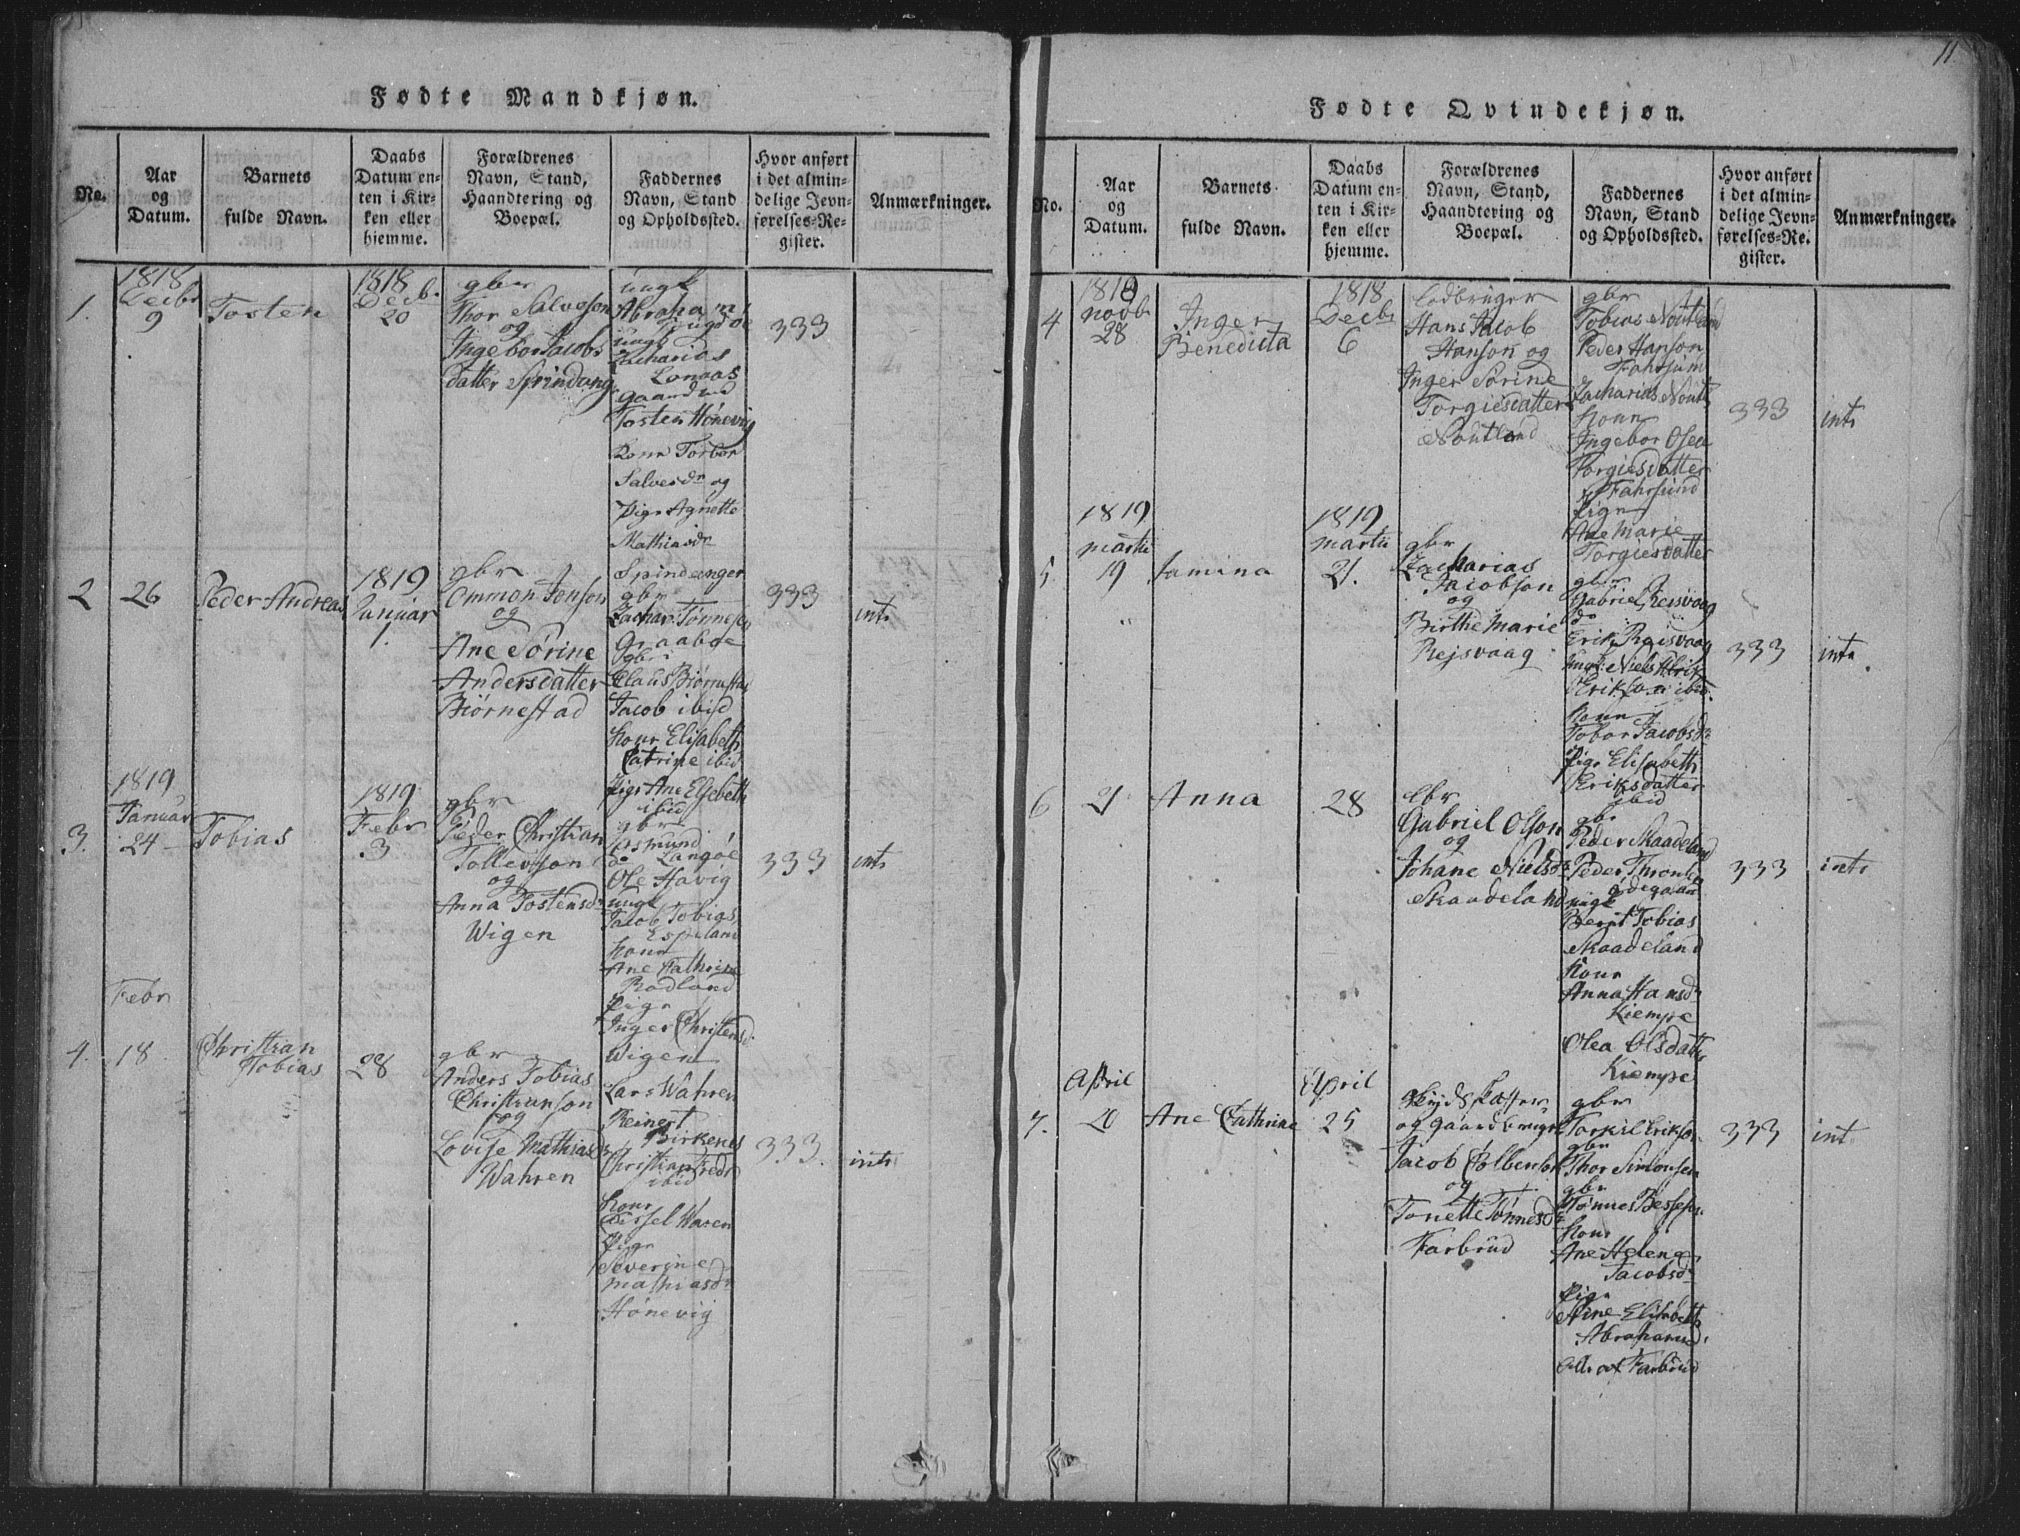 11
Fødte Mandkjøn.
No.
Aar
og
Datum.
Barnets
fulde Navn.
Daabs
Datum en-
ten i Kir-
ken eller
hjemme.
Forældrenes
Navn, Stand,
Haandtering og
Boepæl.
Faddernes
Navn, Stand
og Opholdssted.
Hvor anført
i det almin-
delige Jevn-
førelses-Re-
gister.
Anmærkninger.
1.
1818
Decbr
9
Tosten
1818
Decb.
20
gbr
Thor Salveson
og
Ingebor Jacobs
datter Spindang
ungk
Abraham
ungk
Zacharias
Lonaas
gaardmd
Tosten Hönevig
kone Torbor
Salvesdr og
pige Agnette
Mathiasdr
Spindanger
333
2
26
Peder Andreas
1819
Januar
1.
gbr
Ommon Jonson
og
Ane Sörine
Andersdatter
Biörnestad
gbr
Zachari Tønnesen
Graaboe
gbr
Claus Biørnestad
Jacob ibid
kone Elisabeth
Catrine ibid
pige Ane Elsebeth
ibid
333
intr
3.
1819
Januar
24
Tobias
1819
Febr
3
gbr
Peder Christian
Tollevson
og
Anna Tostensdr
Wigen
gbr
Osmund
Langöe
do
Ole Havig
ungk
Jacob Tobias
Espeland
kone
Ane Cathrine
Rodland
pige
Inger Christensd.
Wigen
333
intr
4.
Febr
18
Christian
Tobias
28
gbr
Anders Tobias
Christianson
og
Lovise Mathiasdr
Wahren
Lars Wahren
Reinert
Birkenes
Christian Fedr
ibid
kone
Sissel Waren
pige
Severine
Mathiasdr
Hönevig
333.
intr
Fødte Qvindekjøn.
No.
Aar
og
Datum.
Barnets
fulde Navn.
Daabs
Datum en-
ten i Kir-
ken eller
hjemme.
Forældrenes
Navn, Stand,
Haandtering og
Boepæl.
Faddernes
Navn, Stand
og Opholdssted.
Hvor anført
i det almin-
delige Jevn-
førelses-Re-
gister.
Anmærkninger.
4
1818
novb.
28
Inger
Benedicta
1818
Decbr
6
Lodbruger
Hans Jacob
Hanson og
Inger Sörine
Torgiesdatter
Noutland
gbr
Tobias Noutland
Peder Hanson
Fahrsund
Zacharias Nout
kone
Ingebor Olea
Torgiesdatter
Fahrsund
pige
Ane Marie
Torgiesdatter
333
intr
5.
1819
martii
19
Jamina
1819
martii
21.
gbr
Zacharias
Jacobson
og
Birthe Marie
Rejsvaag
gbr
Gabriel Rejsvaag
do
Erik Rejsvaag
ungk Niels
Erikson ibid.
kone
Tobor Jacobsdr
pige Elisabeth
Eriksdatter
ibid
333
intr
6
21
Anna
28
gbr
Gabriel Olson
og
Johane Nielsdr
Skaadeland
gbr
Peder Skaadeland
Peder
ödegaard
ungk
Bernt Tobias
Skaadeland
kone
Anna Hansdr
Kiempe
Olea Olsdatter
Kiempe
333
intr
7.
April
20
Ane Cathrine
April
25
og gaardbruger
Jacob Colbenson
og
Tonette Tönnesdr
Farbrud
gbr
Torkil Erikson
gbr
Thor Simonsen
gbr
Tönnes Bessesen
kone
Ane Helene
Jacobsdr
pige
Stine Elisabeth
Abrahamsd.
alle af Farbrud
333
intr